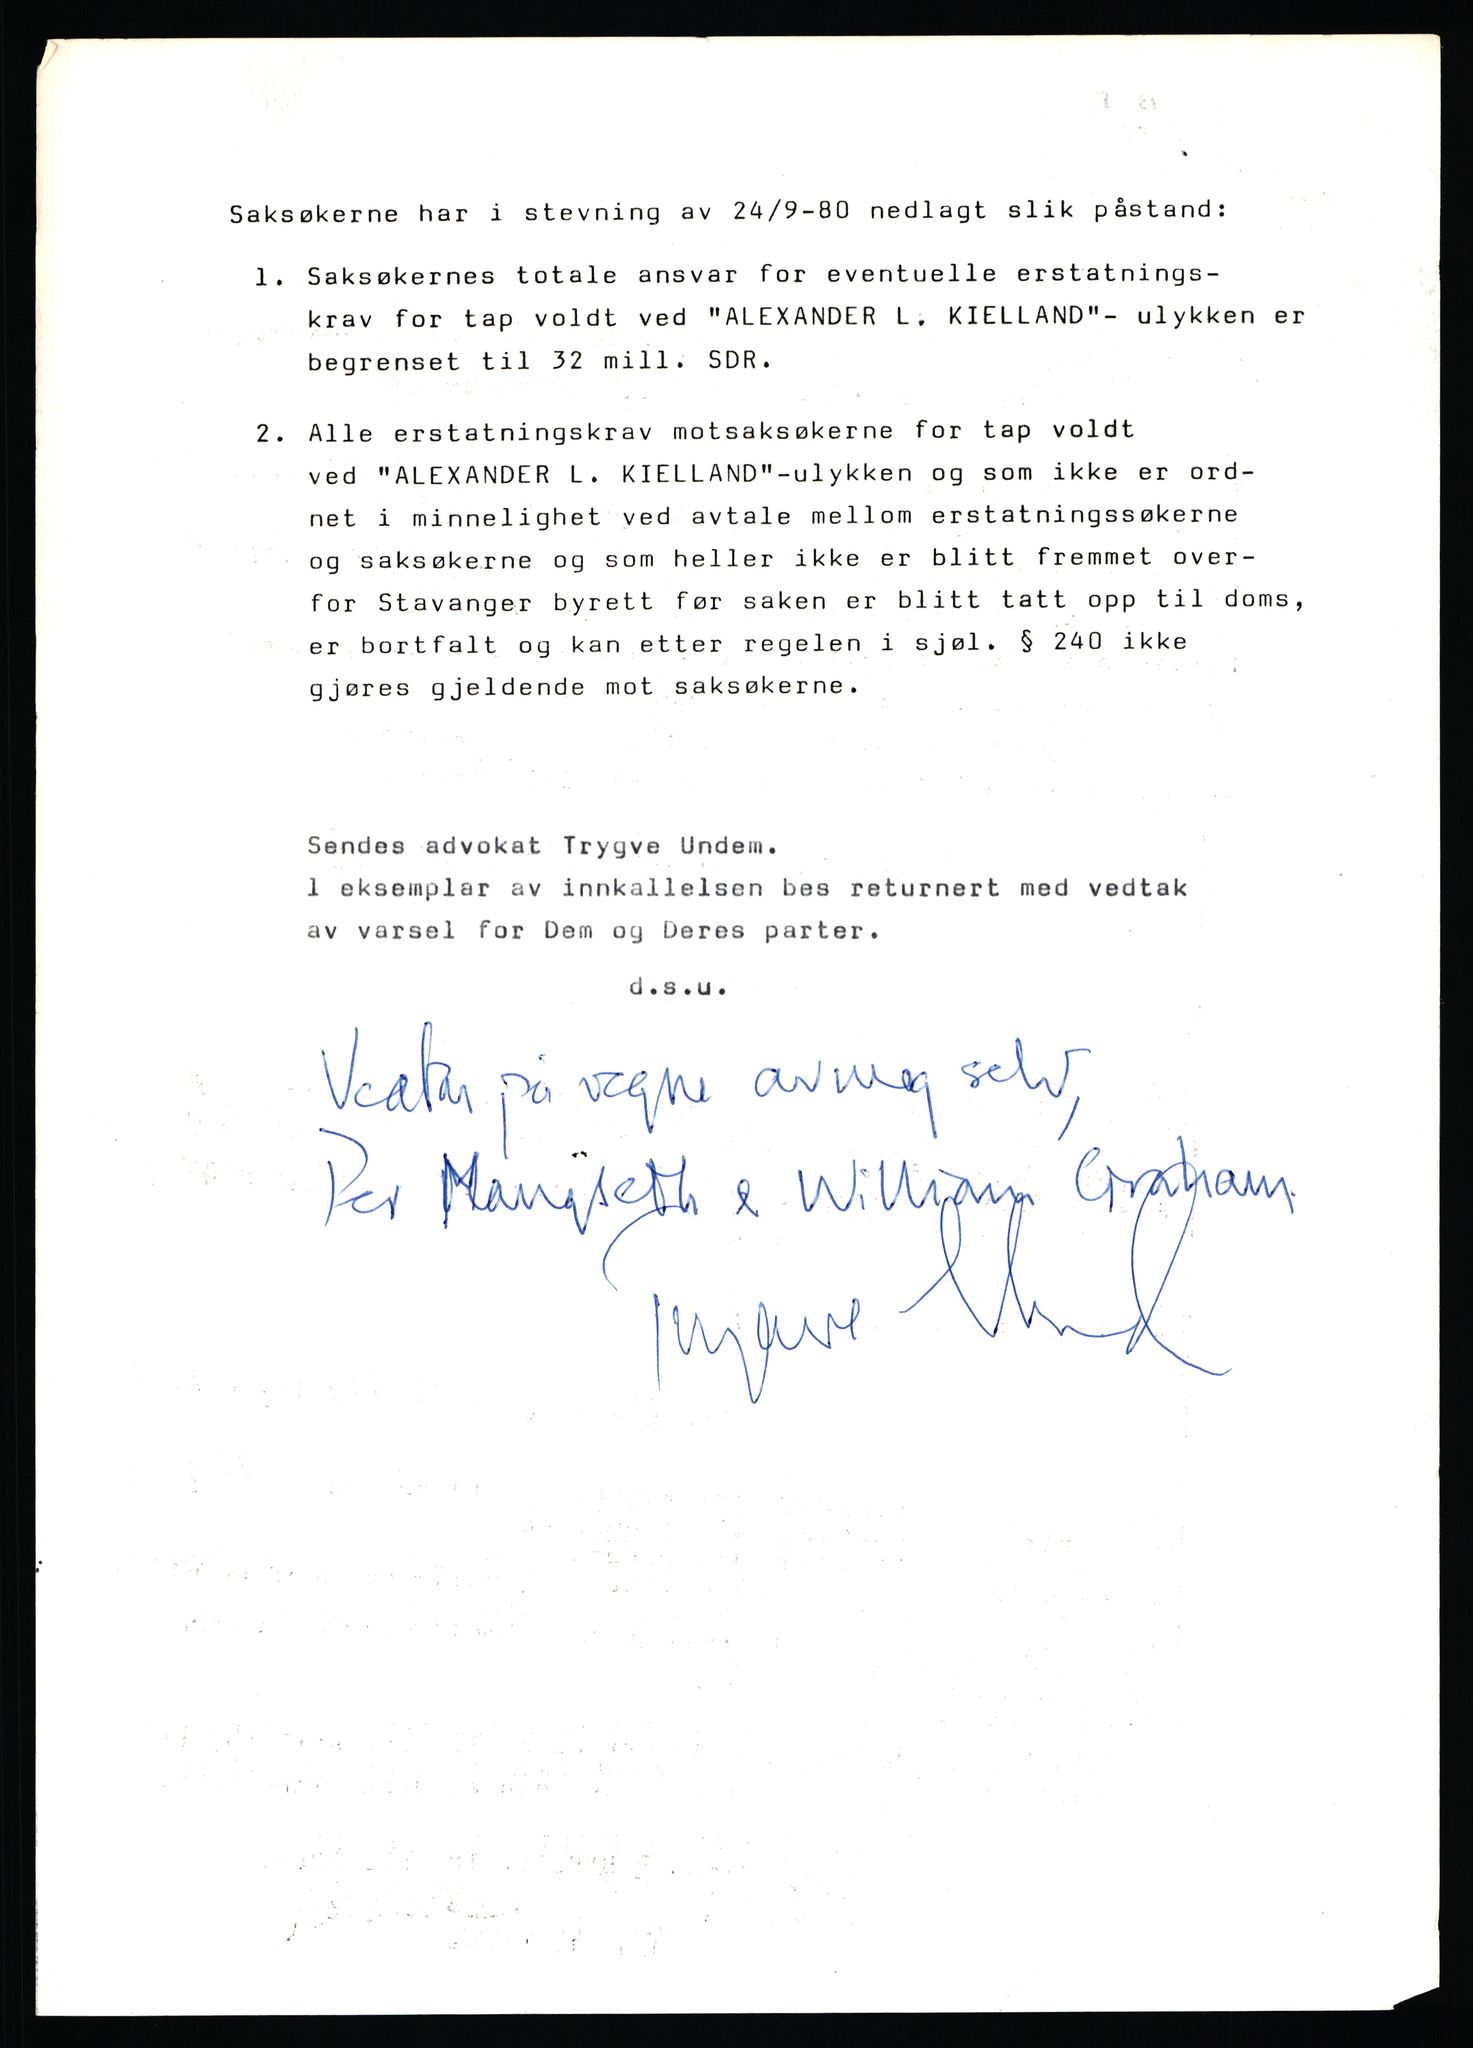 Saksøkerne har i stevning av 24/9-80 nedlagt slik påstand:
1. Saksøkernes totale ansvar for eventuelle erstatnings-
krav for tap voldt ved "ALEXANDER L. KIELLAND"- ulykken er
begrenset til 32 mill. SDR.
2. Alle erstatningskrav motsaksøkerne for tap voldt
ved "ALEXANDER L. KIELLAND"-ulykken og som ikke er ord-
net i minnelighet ved avtale mellom erstatningssøkerne
og saksøkerne og som heller ikke er blitt fremmet over-
for Stavanger byrett før saken er blitt tatt opp til doms,
er bortfalt og kan etter regelen i sjøl. § 240 ikke
gjøres gjeldende mot saksøkerne.
Sendes advokat Trygve Undem.
1 eksemplar av innkallelsen bes returnert med vedtak
av varsel for Dem og Deres parter.
d.s.u.
Vedtar på vegne av meg selv,
Per Mangseth & William Graham.
Trygve